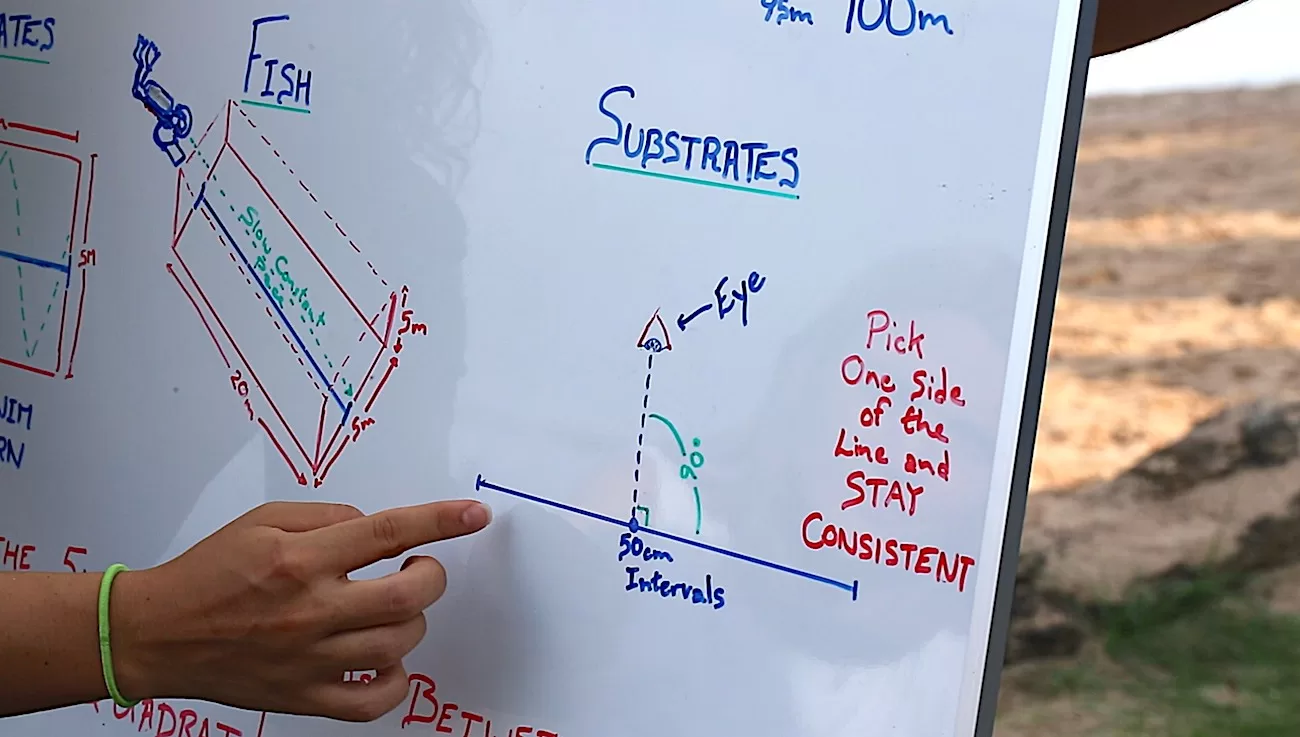 ATES
FISH
95m 100m
SUBSTRATES
5M
Slow Constant
Pace
5m
20m
5m
Eye
90°
50cm
Intervals
Pick
One Side
of the
Line and
STAY
CONSISTENT
IM
RN
THE 5
QUADRAT
IS BETWE